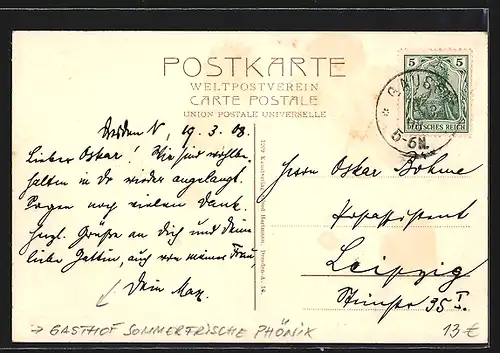 POSTKARTE
WELTPOSTVEREIN
CARTE POSTALE
UNION POSTALE UNIVERSELLE
5 5
DEUTSCHES REICH
GAUS
5-6N.
Dresden N, 19.3.08.
Lieber Oskar! Wir sind wohlbe-
halten in Dr wieder angelangt.
Sagen noch vielen Dank.
Herzl. Grüße an Dich und Deine
liebe Gattin, auch von meiner Frau,
Dein Max.
Herrn Oskar Böhme
Postassistent
Leipzig
35 I.
Dresden-A. 16.
→ GASTHOF SOMMERFRISCHE PHÖNIX
13 €